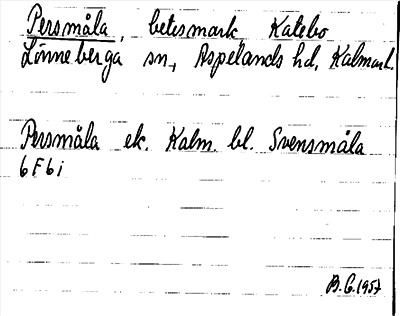 Persmåla, betesmark, Katebo
Lönneberga sn., Aspelands hd, Kalmar l.
Persmåla ek. Kalm. bl. Svensmåla
6 F 6 i
B.G. 1957